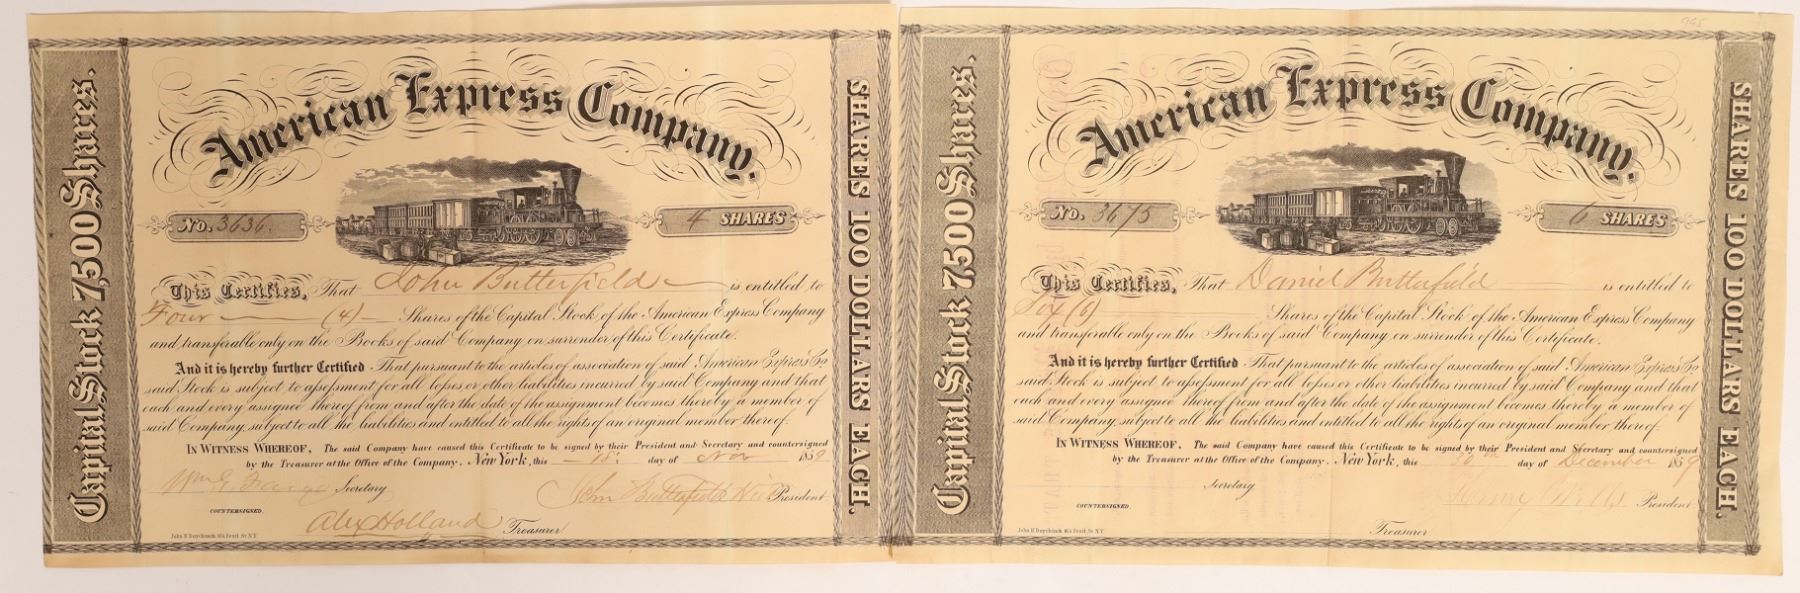 American Express Company.
Capital Stock 7,500 Shares.
SHARES 100 DOLLARS EACH.
No. 3636.
4 SHARES
This Certifies, That John Butterfield is entitled to
Four (4) Shares of the Capital Stock of the American Express Company
and transferable only on the Books of said Company on surrender of this Certificate.
And it is hereby further Certified That pursuant to the articles of association of said American Express Co
said Stock is subject to assessment for all losses or other liabilities incurred by said Company and that
each and every assignee thereof from and after the date of the assignment becomes thereby a member of
said Company, subject to all the liabilities and entitled to all the rights of an original member thereof.
IN WITNESS WHEREOF, The said Company have caused this Certificate to be signed by their President and Secretary and countersigned
by the Treasurer at the Office of the Company. New York, this 18 day of Nov 1859
Wm G. Fargo Secretary John Butterfield Vice President
COUNTERSIGNED.
Alex Holland Treasurer
John H Duyckinck 164 Pearl St N.Y.
995
American Express Company.
Capital Stock 7500 Shares.
SHARES 100 DOLLARS EACH.
No. 3675
6 SHARES
This Certifies, That Daniel Butterfield is entitled to
Six (6) Shares of the Capital Stock of the American Express Company
and transferable only on the Books of said Company on surrender of this Certificate.
And it is hereby further Certified That pursuant to the articles of association of said American Express Co
said Stock is subject to assessment for all losses or other liabilities incurred by said Company and that
each and every assignee thereof from and after the date of the assignment becomes thereby a member of
said Company, subject to all the liabilities and entitled to all the rights of an original member thereof.
IN WITNESS WHEREOF, The said Company have caused this Certificate to be signed by their President and Secretary and countersigned
by the Treasurer at the Office of the Company. New York, this day of December 1859
Secretary Henry Wells President
COUNTERSIGNED
Treasurer
John H Duyckinck 164 Pearl St N.Y